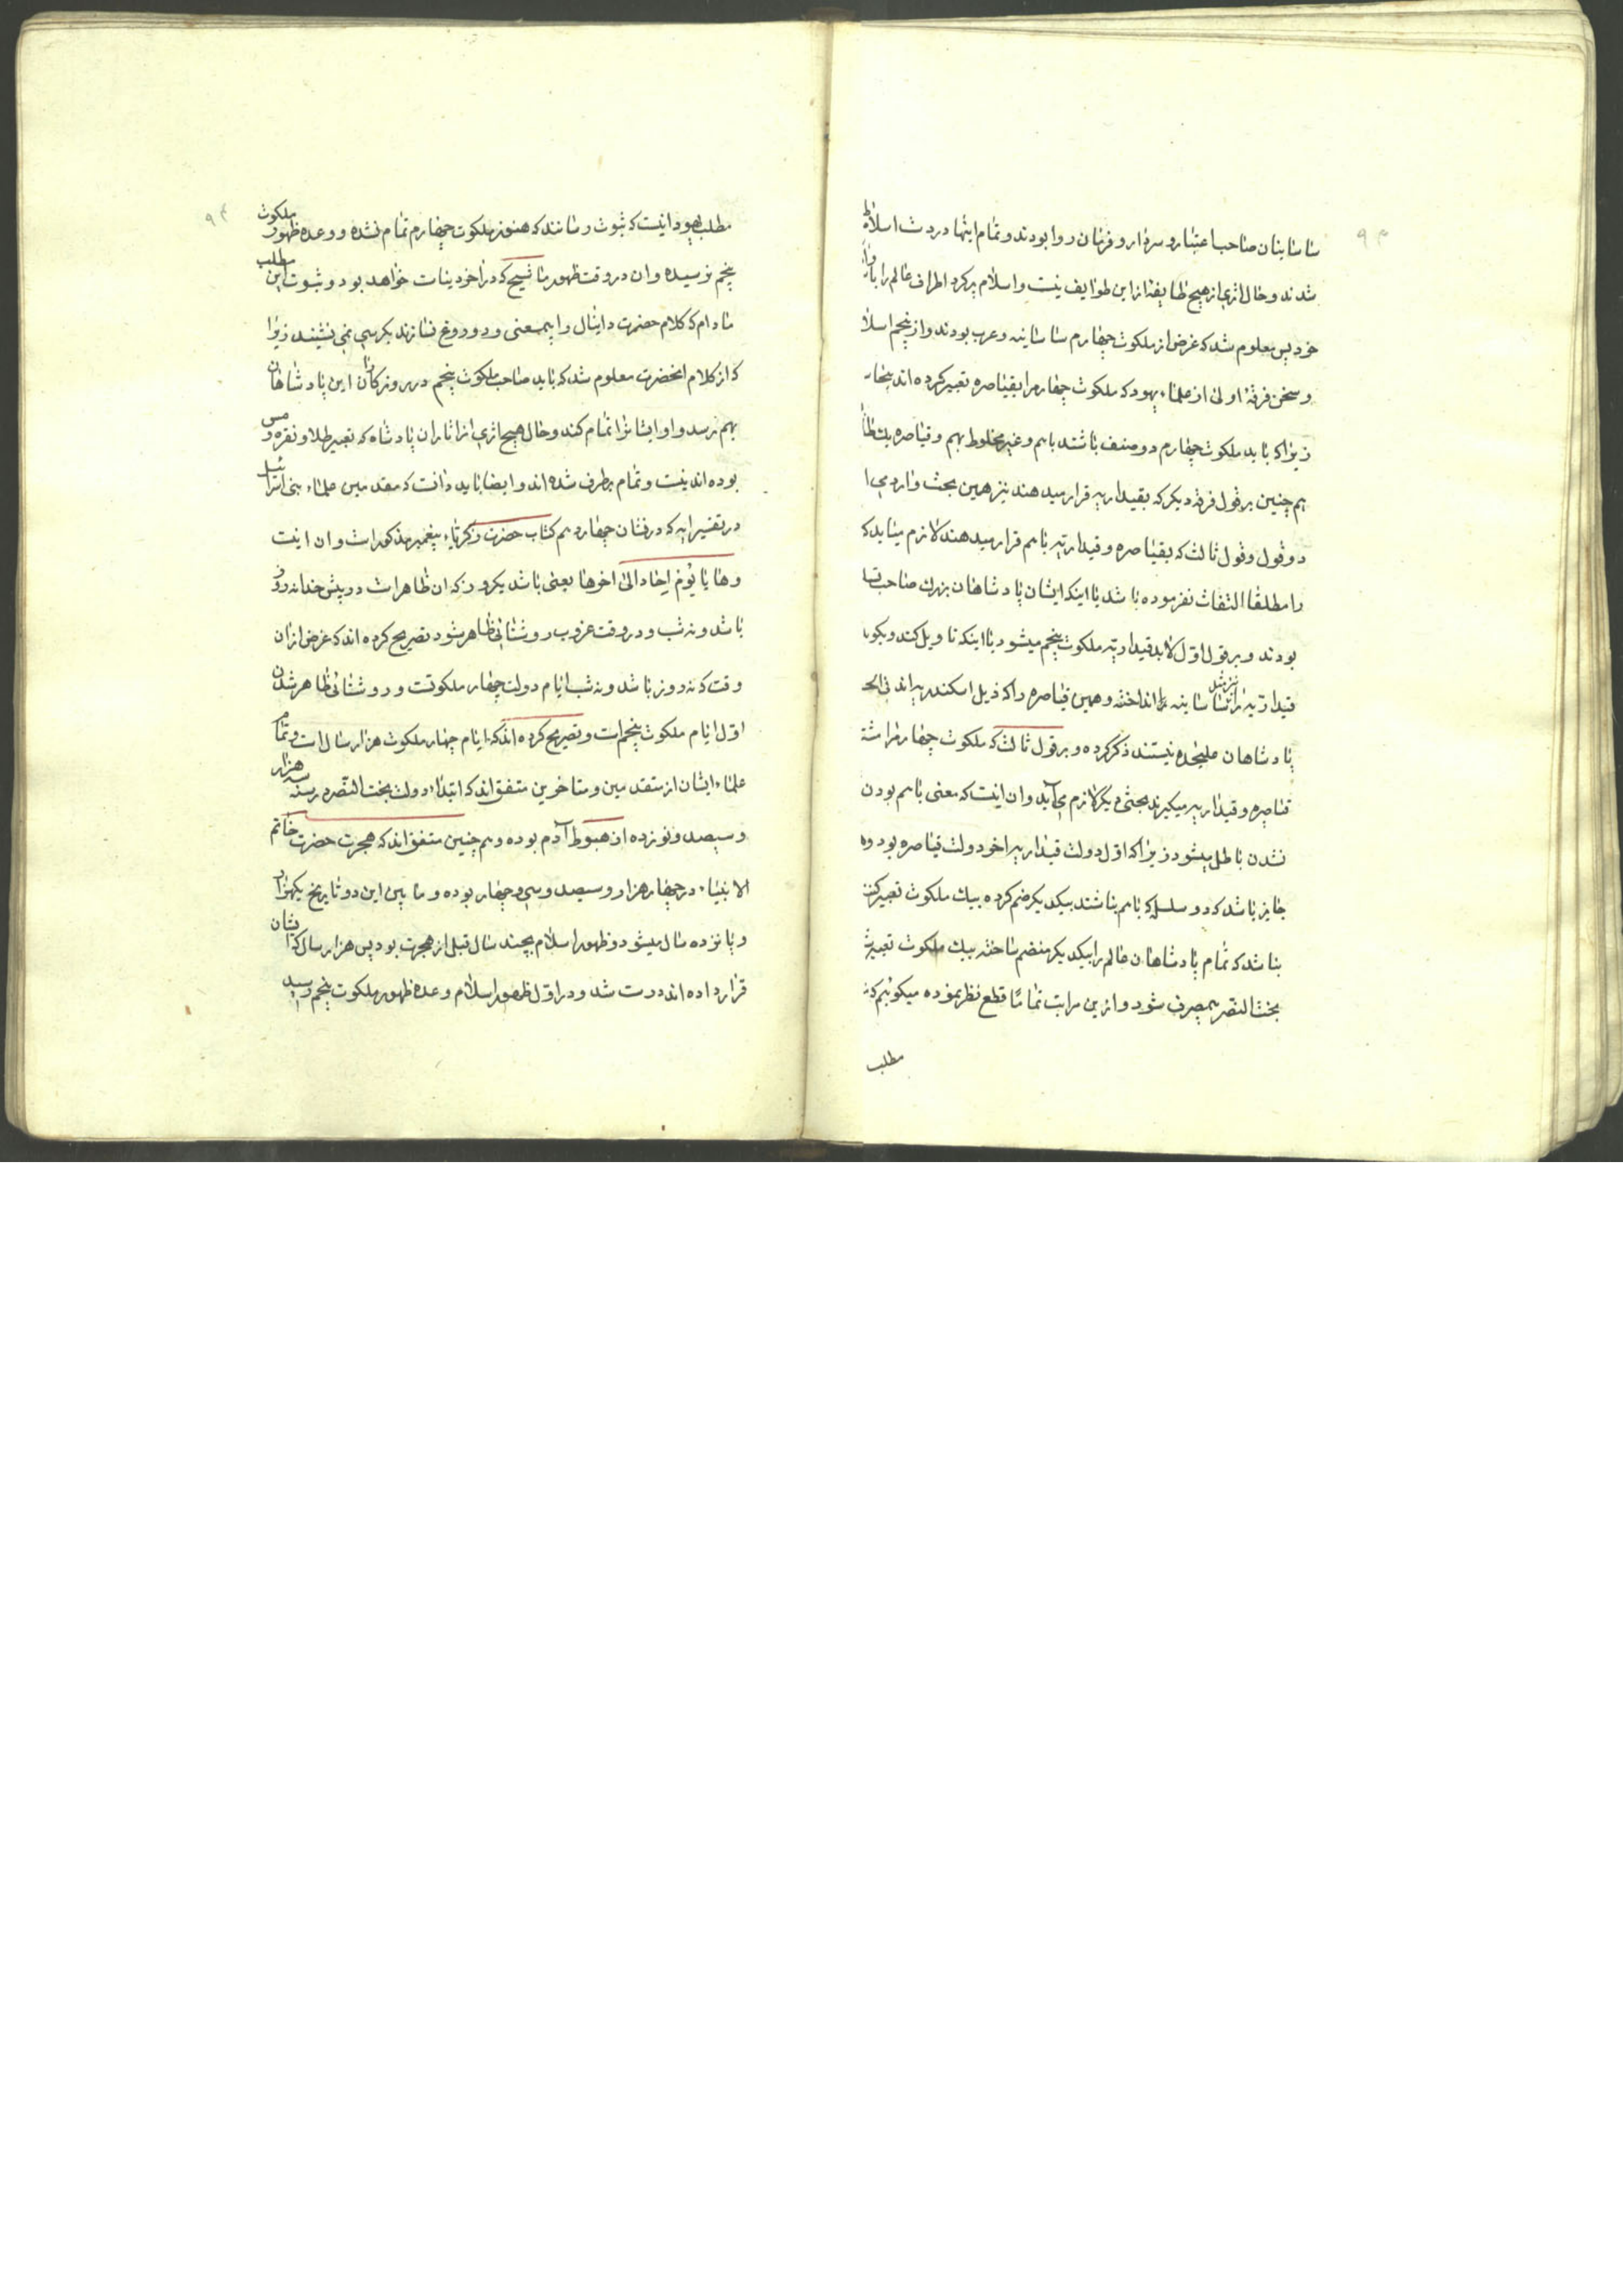 ساسانیان صاحب اعتبار و سردار و فرمان روا بودند و تمام اینها در دست اسلام
شدند و حال اثری از هیچ طایفه از این طوایف نیست و اسلام پر کرد اطراف عالم را
خود پس معلوم شد که غرض از ملکوت چهارم ساسانیه و عرب بودند و از پنجم اسلام
و سخن فرقهٔ اولی از علماء یهود که ملکوت چهارم را بقیاصره تعبیر کرده اند
زیرا که باید ملکوت چهارم دو صنف باشند باهم و غیر مخلوط بهم و قیاصره یک
هم چنین بر قول فرقه دیکر که بقیداریه قرار میدهند نیز همین بحث وارد می
دو قول و قول ثالث که بقیاصره و قیداریه باهم قرار میدهند لازم میاید که
را مطلقا التفات نفرموده باشد با اینکه ایشان پادشاهان بزرک صاحب
بودند و بر قول اول لابد قیداریه ملکوت پنجم میشود با اینکه تاویل کند و بکوید
قیداریه را نیز مثل ساسانیه انداخته و همین قیاصره را که ذیل اسکندریه اند
پادشاهان علیحده نیستند ذکر کرده و بر قول ثالث که ملکوت چهارم را
قیاصره و قیداریه میکیرند بحثی دیکر لازم می آید و ان اینست که معنی باهم بودن
نشدن باطل میشود زیرا که اول دولت قیداریه اخر دولت قیاصره بود و
جایز باشد که دو سلسله که باهم نباشند بیکدیکر ضم کرده بیک ملکوت تعبیر کنند
بنا شد که تمام پادشاهان عالم را بیکدیکر منضم ساخته بیک ملکوت تعبیر
بخت النصر بمصرف شود و ازین مراتب تماما قطع نظر نموده میکوئیم که
مطلب
مطلب یهود اینست که ثبوت رسانند که هنوز ملکوت چهارم تمام نشده و وعده ظهور ملکوت
پنجم نرسیده و ان در وقت ظهور ماشیح که در اخر دینات خواهد بود و ثبوت این مطلب
مادام که کلام حضرت دانیال را بیمعنی و دروغ نسازند بکرسی نمی نشیند زیرا
که از کلام انحضرت معلوم شد که باید صاحب ملکوت پنجم در روزکاران این پادشاهان
بهم رسد و او ایشانرا تمام کند و حال هیچ اثری از اثاران پادشاه که تعبیر بطلا و نقره و مس
بوده اند نیست و تمام برطرف شده اند و ایضا باید دانست که مقدمین علماء بنی اسرائیل
در تفسیر ایه که در نشان چهاردهم کتاب حضرت زکریاء پیغمبر مذکور است و ان اینست
و هایا یوم ایحاد الی اخرها یعنی باشد یکروز که ان ظاهر است در پیش خدا نه روز
باشد و نه شب و در وقت غروب روشنائی ظاهر شود تصریح کرده اند که غرض از ان
وقت که نه روز باشد و نه شب ایام دولت چهار ملکوتست و روشنائی ظاهر شدن
اول ایام ملکوت پنجم است و تصریح کرده اند که ایام چهار ملکوت هزار سال است و تمام
علماء ایشان از متقدمین و متاخرین متفق اند که ابتداء دولت بخت النصر در سنه سه هزار
و سیصد و نوزده از هبوط آدم بوده و هم چنین متفق اند که هجرت حضرت خاتم
الانبیاء در چهار هزار و سیصد و سی و چهار بوده و ما بین این دو تاریخ یکهزار
و پانزده سال میشود و ظهور اسلام بچند سال قبل از هجرت بود پس هزار سال که ایشان
قرار داده اند درست شد و در اول ظهور اسلام وعده ظهور ملکوت پنجم رسید